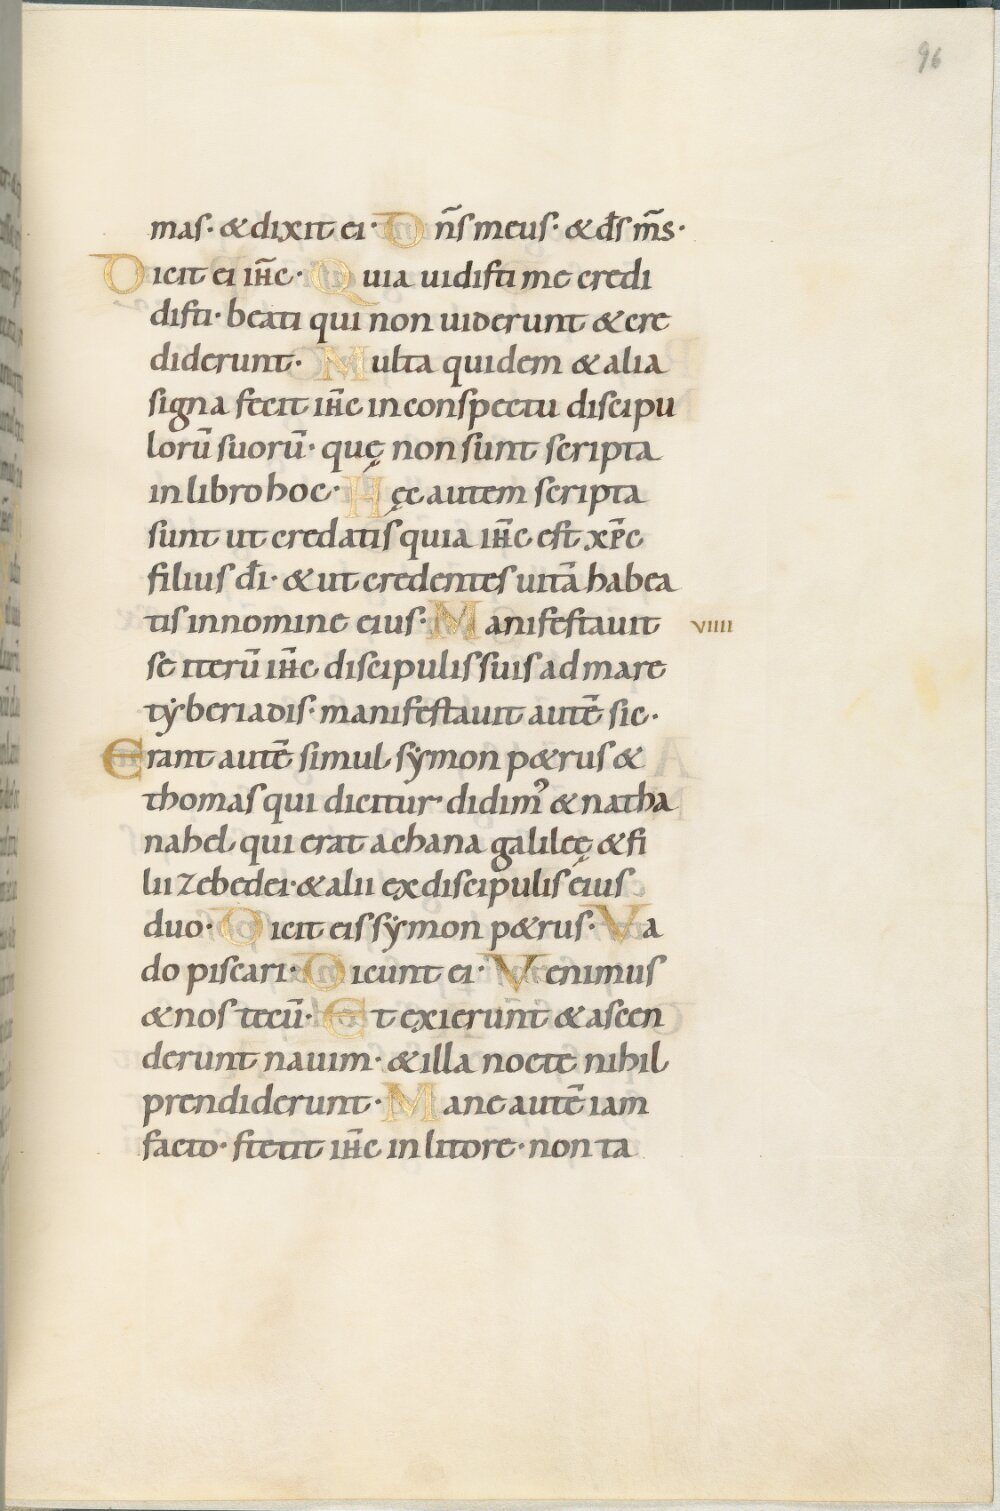 96
mas· & dixit ei· Dn̄s meus· & d̄s m̄s·
Dicit ei ih̄c· Quia uidisti me credi
disti· beati qui non uiderunt & cre
diderunt· Multa quidem & alia
signa fecit ih̄c in conspectu discipu
lorū suorū· quę non sunt scripta
in libro hoc· Hęc autem scripta
sunt ut credatis quia ih̄c est xp̄c
filius d̄i· & ut credentes uitā habea
tis in nomine eius· Manifestauit viiii
se iterū ih̄c discipulis suis ad mare
tẏberiadis· manifestauit autē sic·
Erant autē simul sẏmon p&rus &
thomas qui dicitur didim᾿ & natha
nahel qui erat a chana galileę & fi
lii zebedei· & alii ex discipulis eius
duo· Dicit eis sẏmon p&rus· Va
do piscari· Dicunt ei· Venimus
& nos tecū· Et exierunt & ascen
derunt nauim· & illa nocte nihil
prendiderunt· Mane autē iam
facto· stetit ih̄c in litore· non ta